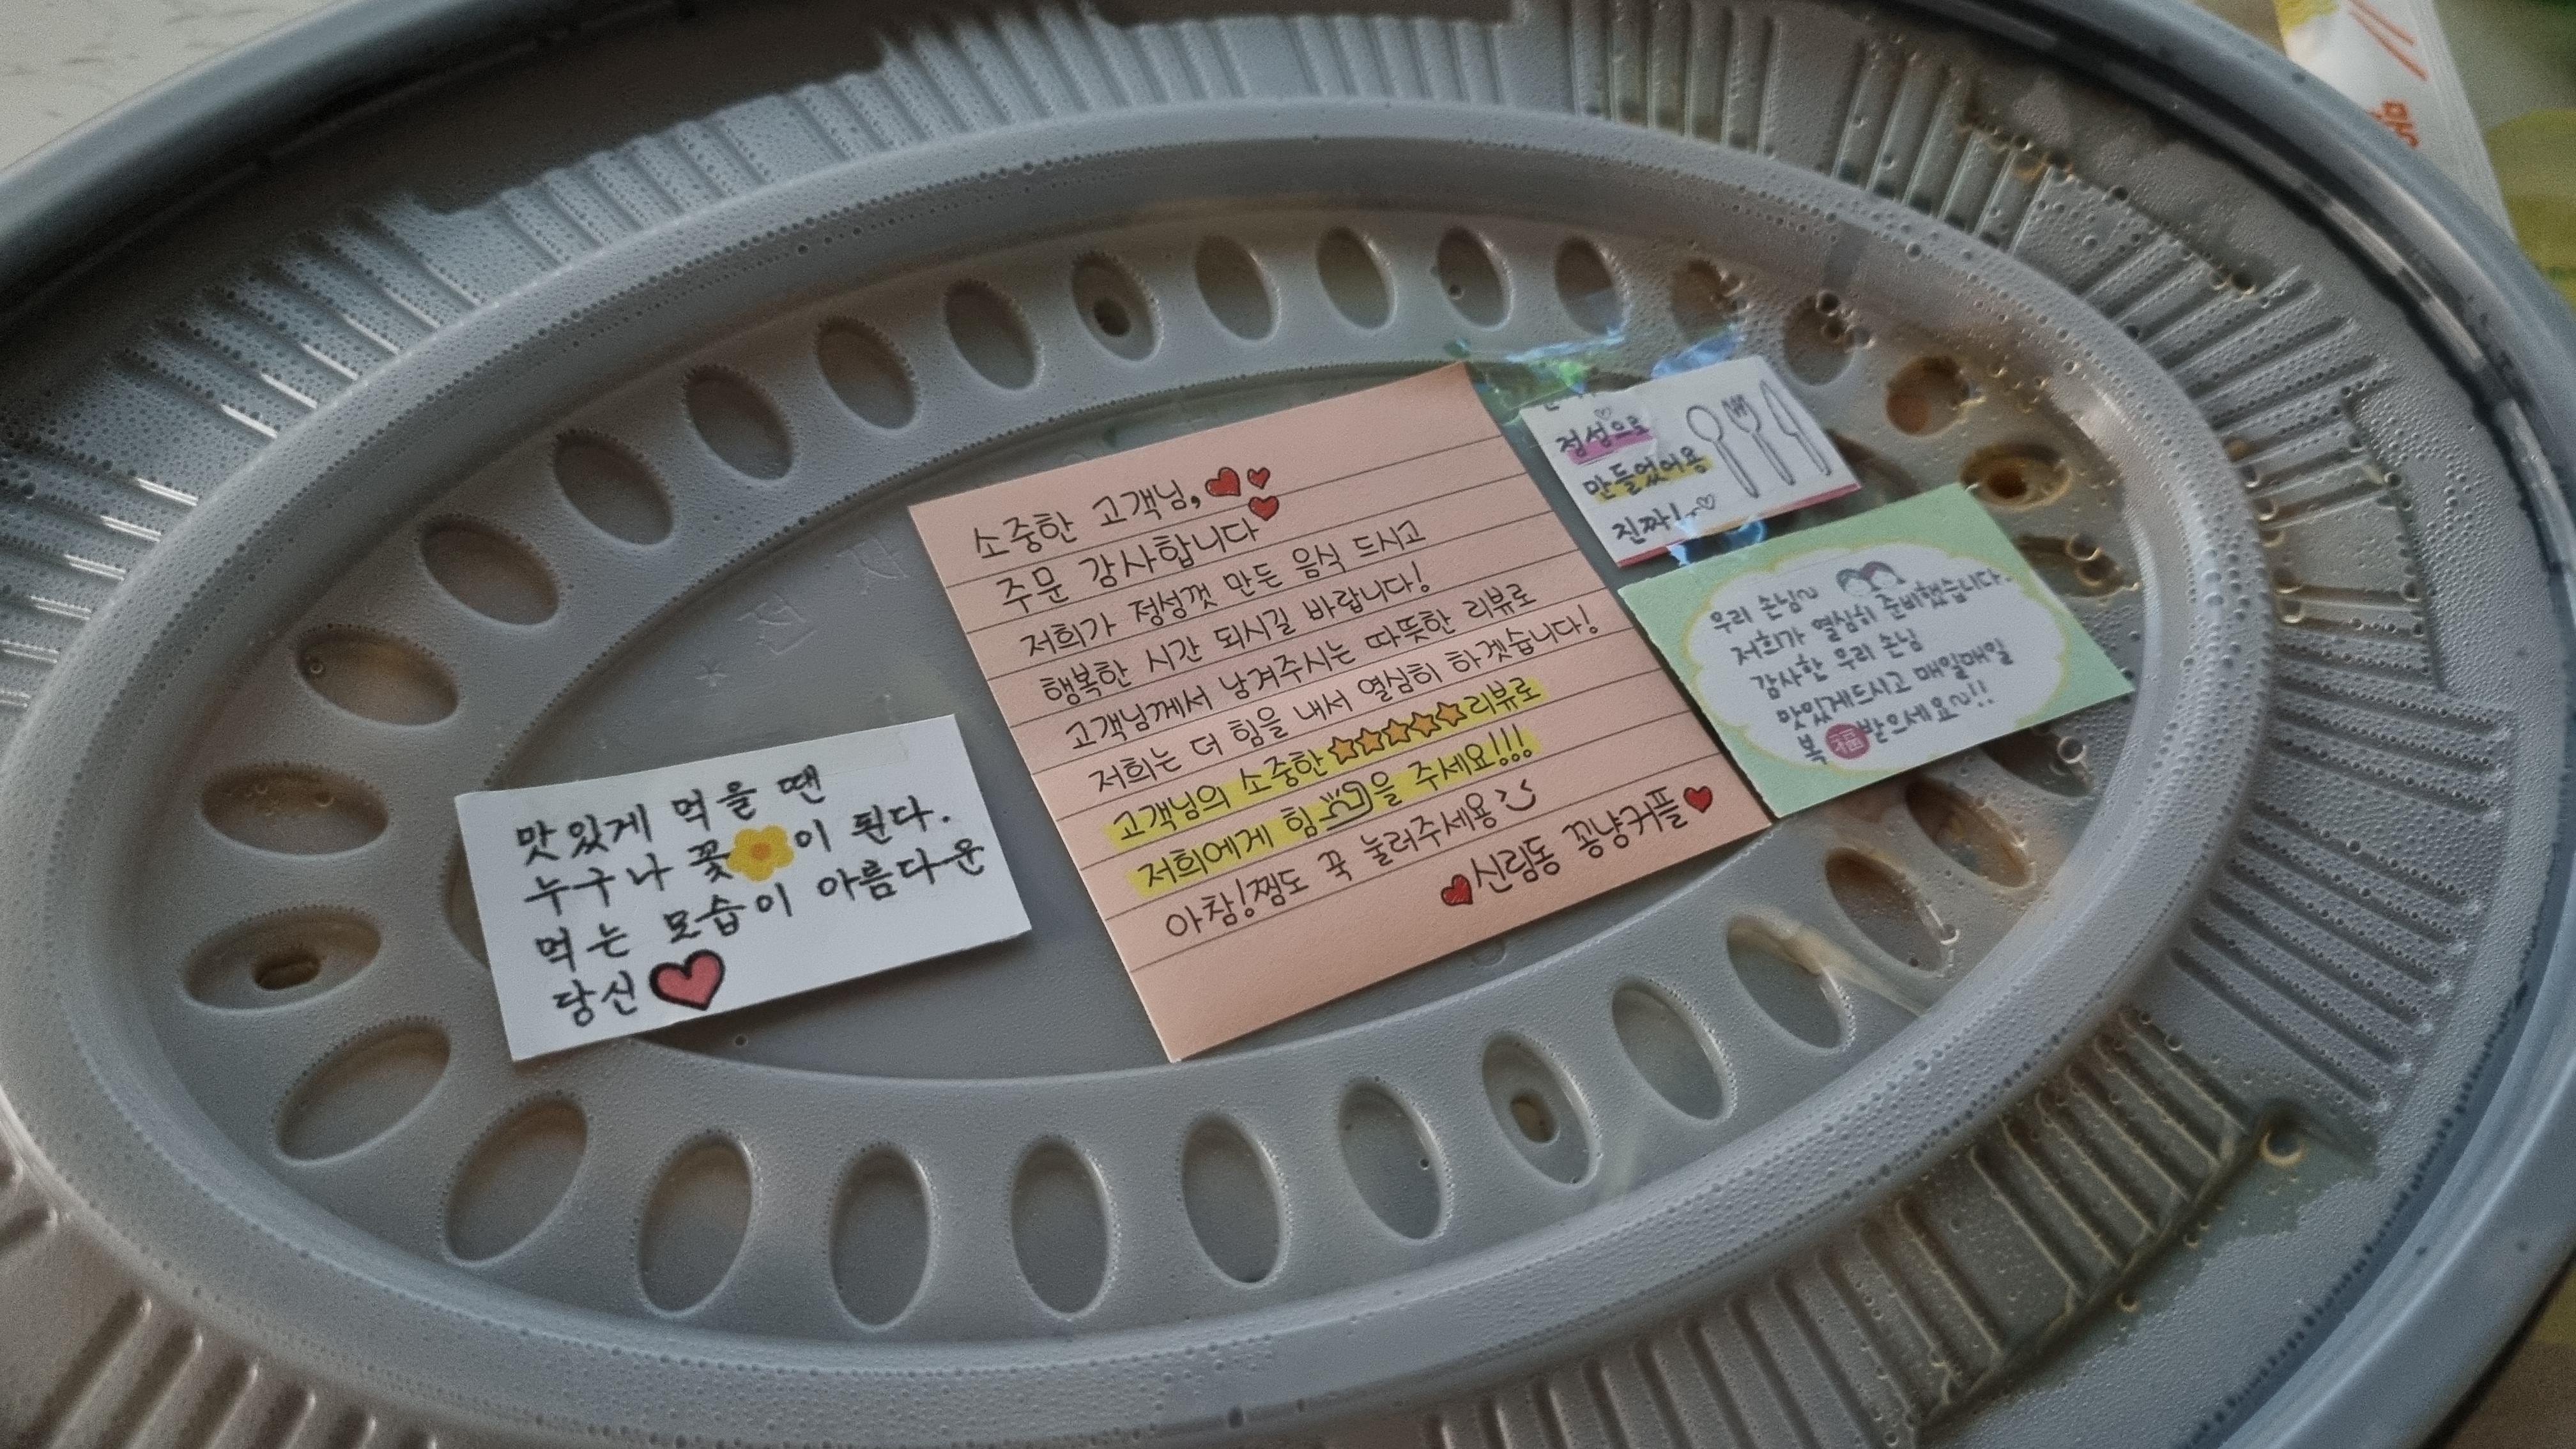 맛있게 먹을 땐
누구나 꽃이 된다.
먹는 모습이 아름다운
당신
소중한 고객님,
주문 감사합니다
저희가 정성껏 만든 음식 드시고
행복한 시간 되시길 바랍니다!
고객님께서 남겨주시는 따뜻한 리뷰로
저희는 더 힘을 내서 열심히 하겠습니다!
고객님의 소중한 ★★★★★리뷰로
저희에게 힘을 주세요!!!
아참!찜도 꾹 눌러주세용
신림동 꽁냥커플
정성으로
만들었어용
진짜!
우리 손님~
저희가 열심히 준비했습니다.
감사한 우리 손님
맛있게드시고 매일매일
복 福 받으세요~!!